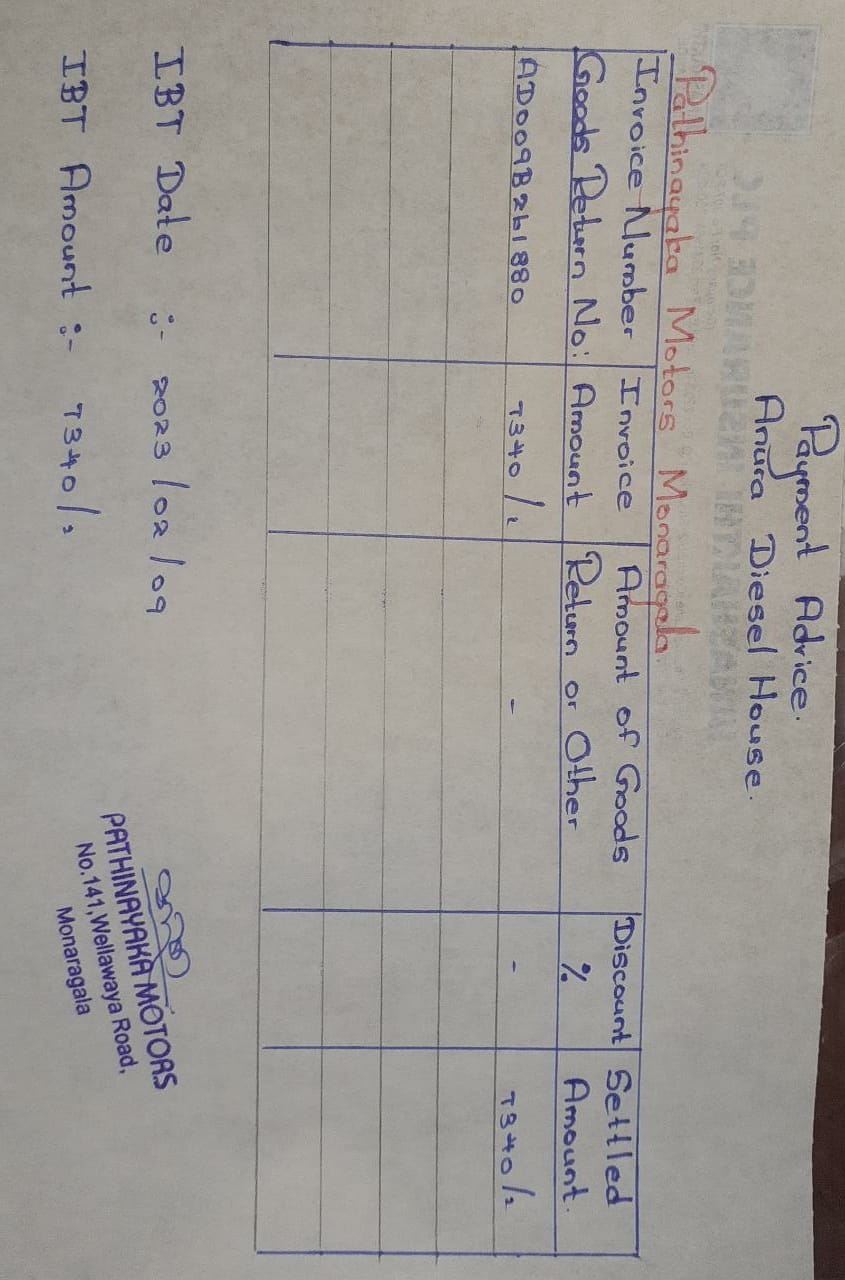 Payment Advice.
Anura Diesel House.
Pathinayaka Motors Monaragala.
Invoice Number Invoice Amount of Goods Discount Settled
Goods Return No: Amount Return or Other % Amount.
AD009B261880 7340/= - - 7340/=
IBT Date :- 2023/02/09
IBT Amount :- 7340/=
PATHINAYAKA MOTORS
No.141, Wellawaya Road,
Monaragala